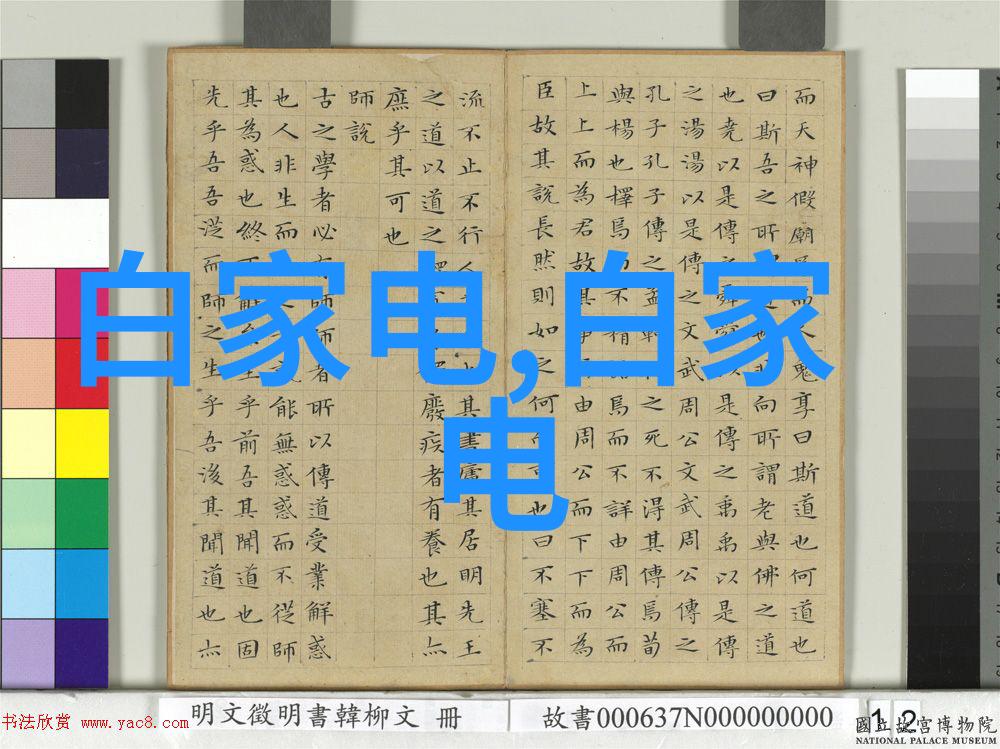 而天神假廟而人鬼享曰斯道也何道也
曰斯吾之所也非向所謂老與佛之道
也堯以是傳之舜以是傳之禹禹以是傳
之湯湯以是傳之文武周公文武周公傳之
孔子孔子傳之孟軻之死不得其傳焉荀
與楊也擇焉而不精焉而不詳由周公而
上上而為君故其事由周公而下下而為
臣故其說長然則如之何可也曰不塞不
流不止不行人其書廬其居明先王
之道以道之鰥廢疾者有養也其亦
庶乎其可也
師說
古之學者必有師師者所以傳道受業解惑
也人非生而能無惑惑而不從師
其為惑也終不解生乎前吾其聞道也固
先乎吾吾從而師之生乎吾後其聞道也亦
白家电,白家
电
明文徵明書韓柳文 冊
故書000637N000000000
1 2
書法欣赏 www.yac8.com
國立故宮博物院
NATIONAL PALACE MUSEUM